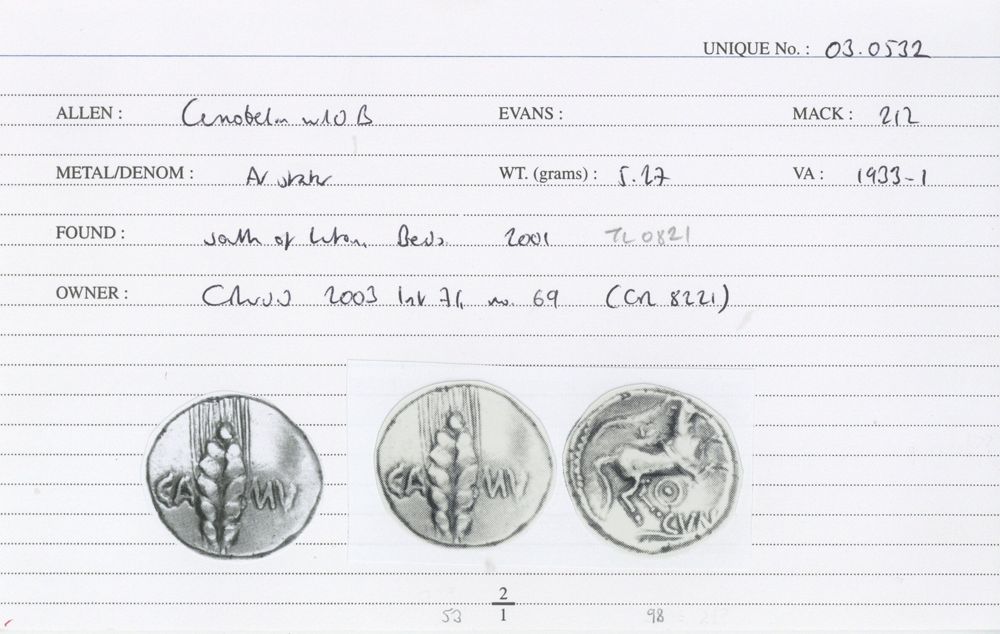 UNIQUE No. : 03.0532
ALLEN : Cunobelin w10 B EVANS : MACK : 212
METAL/DENOM : AV stater WT. (grams) : 5.27 VA : 1933-1
FOUND : south of Luton, Beds. 2001 TL 0821
OWNER : 2003 list 71, no. 69 (CR 8221)
CA MV CA MV CVN
2
53 1 98